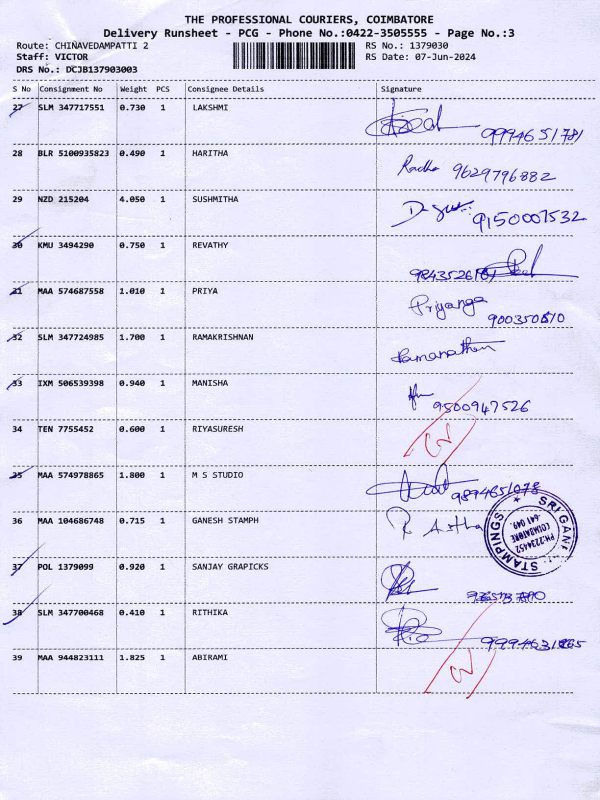 THE PROFESSIONAL COURIERS, COIMBATORE
Delivery Runsheet - PCG - Phone No.:0422-3505555 - Page No.:3
Route: CHINAVEDAMPATTI 2 RS No.: 1379030
Staff: VICTOR RS Date: 07-Jun-2024
DRS No.: DCJB137903003
S No Consignment No Weight PCS Consignee Details Signature
27 SLM 347717551 0.730 1 LAKSHMI
9994651781
28 BLR 5100935823 0.490 1 HARITHA
Radha 9629796882
29 NZD 215204 4.050 1 SUSHMITHA
9150007532
30 KMU 3494290 0.750 1 REVATHY
31 MAA 574687558 1.010 1 PRIYA
Priyanga
32 SLM 347724985 1.700 1 RAMAKRISHNAN
Ramanathan
33 IXM 506539398 0.940 1 MANISHA
9500947526
34 TEN 7755452 0.600 1 RIYASURESH
35 MAA 574978865 1.800 1 M S STUDIO
9894651078
36 MAA 104686748 0.715 1 GANESH STAMPH
SRI GANESH STAMPINGS
COIMBATORE
-641 049.
PH:2234452
37 POL 1379099 0.920 1 SANJAY GRAPICKS
38 SLM 347700468 0.410 1 RITHIKA
39 MAA 944823111 1.825 1 ABIRAMI